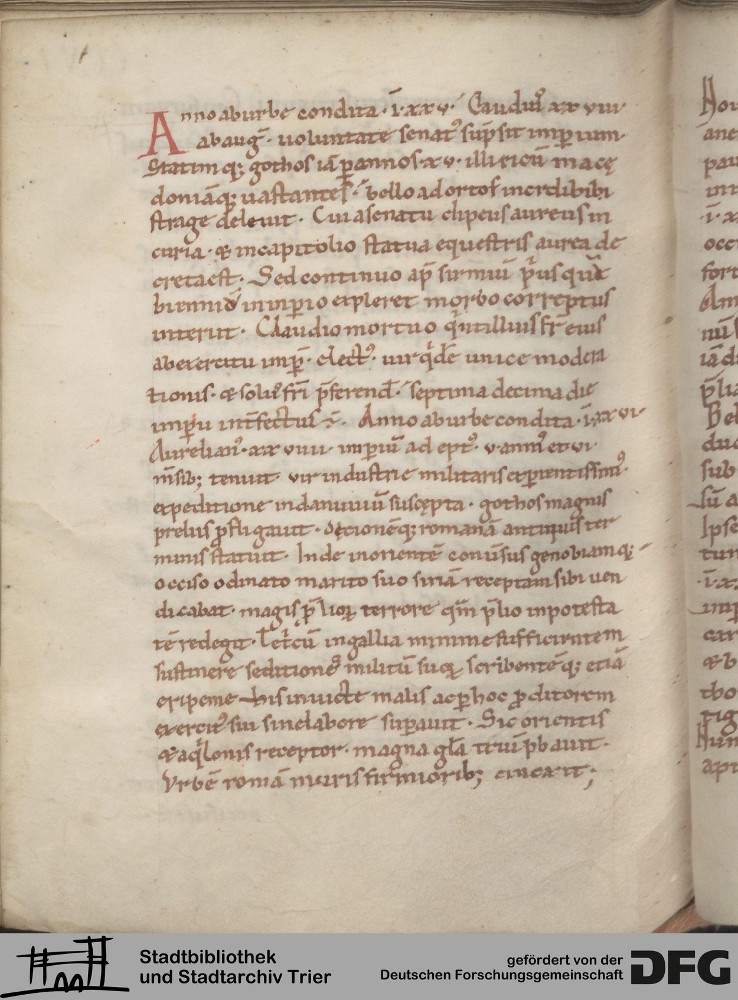 Anno ab urbe condita · ī·xxv· Caudius xxviii·
ab aug̅· uoluntate senat᷒ sūpsit imp̅ium·
Statimq; gothos iā p̱ annos·xv· illiricū macę
doniāq; uastantes· bello adortos incrdibibi
strage deleuit· Cui a senatu clipeus aureus in
curia· & in capitolio statua equestris aurea de
creta est· Sed continuo ap̅ sirmiū p̅usquā
bienniū in inp̅io expleret morbo correptus
interiit· Claudio mortuo q̇ntillius fr̅ eius
ab exercitu imp̅· elect᷒· uir q̇dē unice modera
tionis· & soli᷒ fr̅i p̅ferend᷒· septima decima die
imp̅ii int̅fectus ē· Anno ab urbe condita· ī·xxvi·
Aurelian᷒· xxviiii· imp̅iū adept᷒· v·annis et vi·
m̅sib; tenuit· vir industrie militaris exp̱ientissim᷒·
expeditione in danuuiū suscępta· gothos magnis
preliis p̱fligauit· dicionēq; romanā antiquis ter
minis statuit· Inde in orientē conu̅sus genobiam q;
occiso odinato marito suo siriā receptam sibi uen
dicabat· magis p̅lioꝝ terrore quā p̅lio in potesta
tē redegit· Tetricū in gallia minime sufficientem
sustinere seditiones militū suoꝝ scribentēq; etiā
eripe me his inuicte malis ac p̱ hoc p̱ditorem
exercit᷒ sui sine labore sup̱auit· Sic orientis
& aq̇lonis receptor· magna gl̅a triūphauit·
Vrbē romā muris firmiorib; cincxit;
Stadtbibliothek
und Stadtarchiv Trier
gefördert von der
Deutschen Forschungsgemeinschaft
DFG